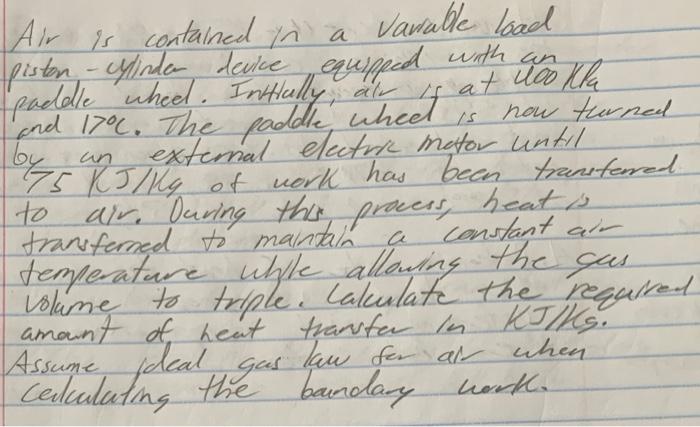 Air is contained in a variable load
piston-cylinder device equipped with an
paddle wheel. Initially, air is at 400 KPa
and 17°C. The paddle wheel is now turned
by an external electric motor until
75 KJ/Kg of work has been transferred
to air. During this process, heat is
transferred to maintain a constant air
temperature while allowing the gas
volume to triple. Calculate the required
amount of heat transfer in KJ/Kg.
Assume ideal gas law for air when
calculating the boundary work.